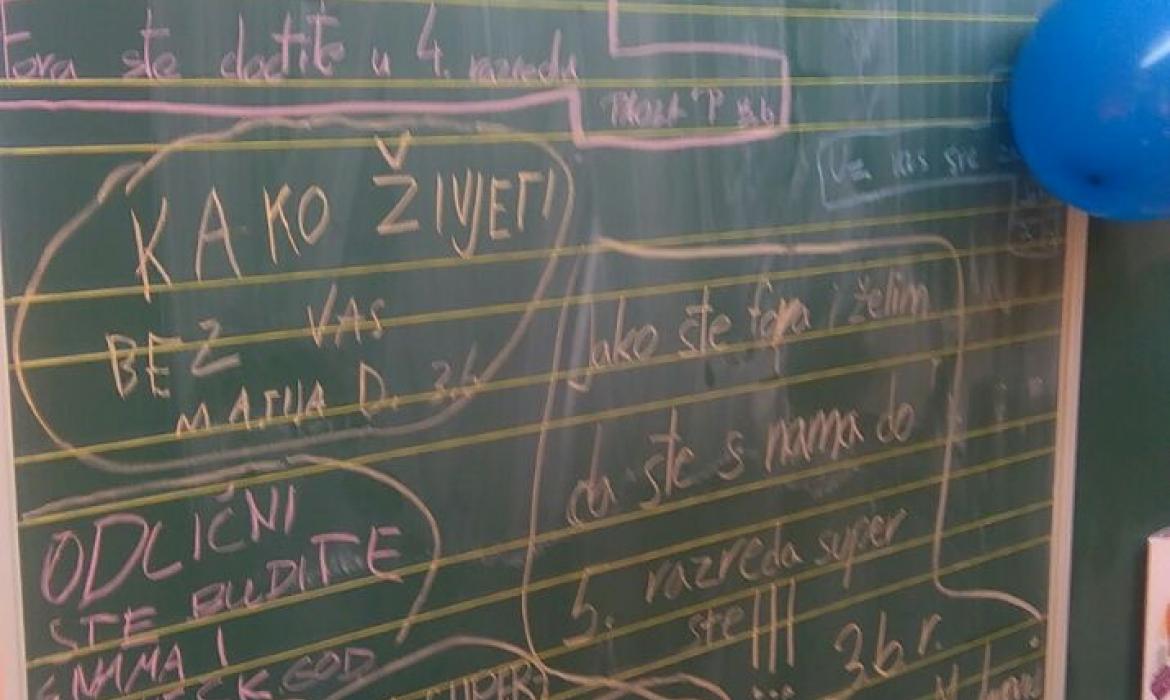 Fora ste dođite u 4. razredu
KAKO ŽIVJETI
BEZ VAS
MATIJA D. 3.b
Jako ste fora i želim
da ste s nama do
5. razreda super
ste!!!
3.b r.
ODLIČNI
STE BUDITE
S NAMA I
GOD
SUPER